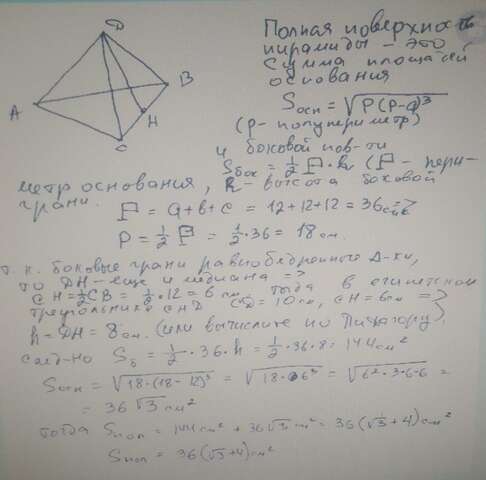 D
A
B
C
H
Полная поверхность
пирамиды - это
сумма площадей
основания
Sосн = √P(P-a)³
(P - полупериметр)
и боковой пов-ти
Sбок = 1/2 P·h (P - пери-
метр основания, h - высота боковой
грани.
P = a+b+c = 12+12+12 = 36 см
P = 1/2 P = 1/2·36 = 18 см.
т. к. боковые грани равнобедренные Δ-ки,
то DH - еще и медиана =>
CH = 1/2 CB = 1/2·12 = 6 см, тогда в египетском
треугольнике CHD CD = 10 см, CH = 6 см =>
h = DH = 8 см. (или вычислите по Пифагору)
след-но Sб = 1/2·36·h = 1/2·36·8 = 144 см²
Sосн = √18·(18-12)³ = √18·6³ = √6²·3·6·6 =
= 36√3 см²
тогда Sпол = 144 см² + 36√3 см² = 36(√3+4) см²
Sпол = 36(√3+4) см²